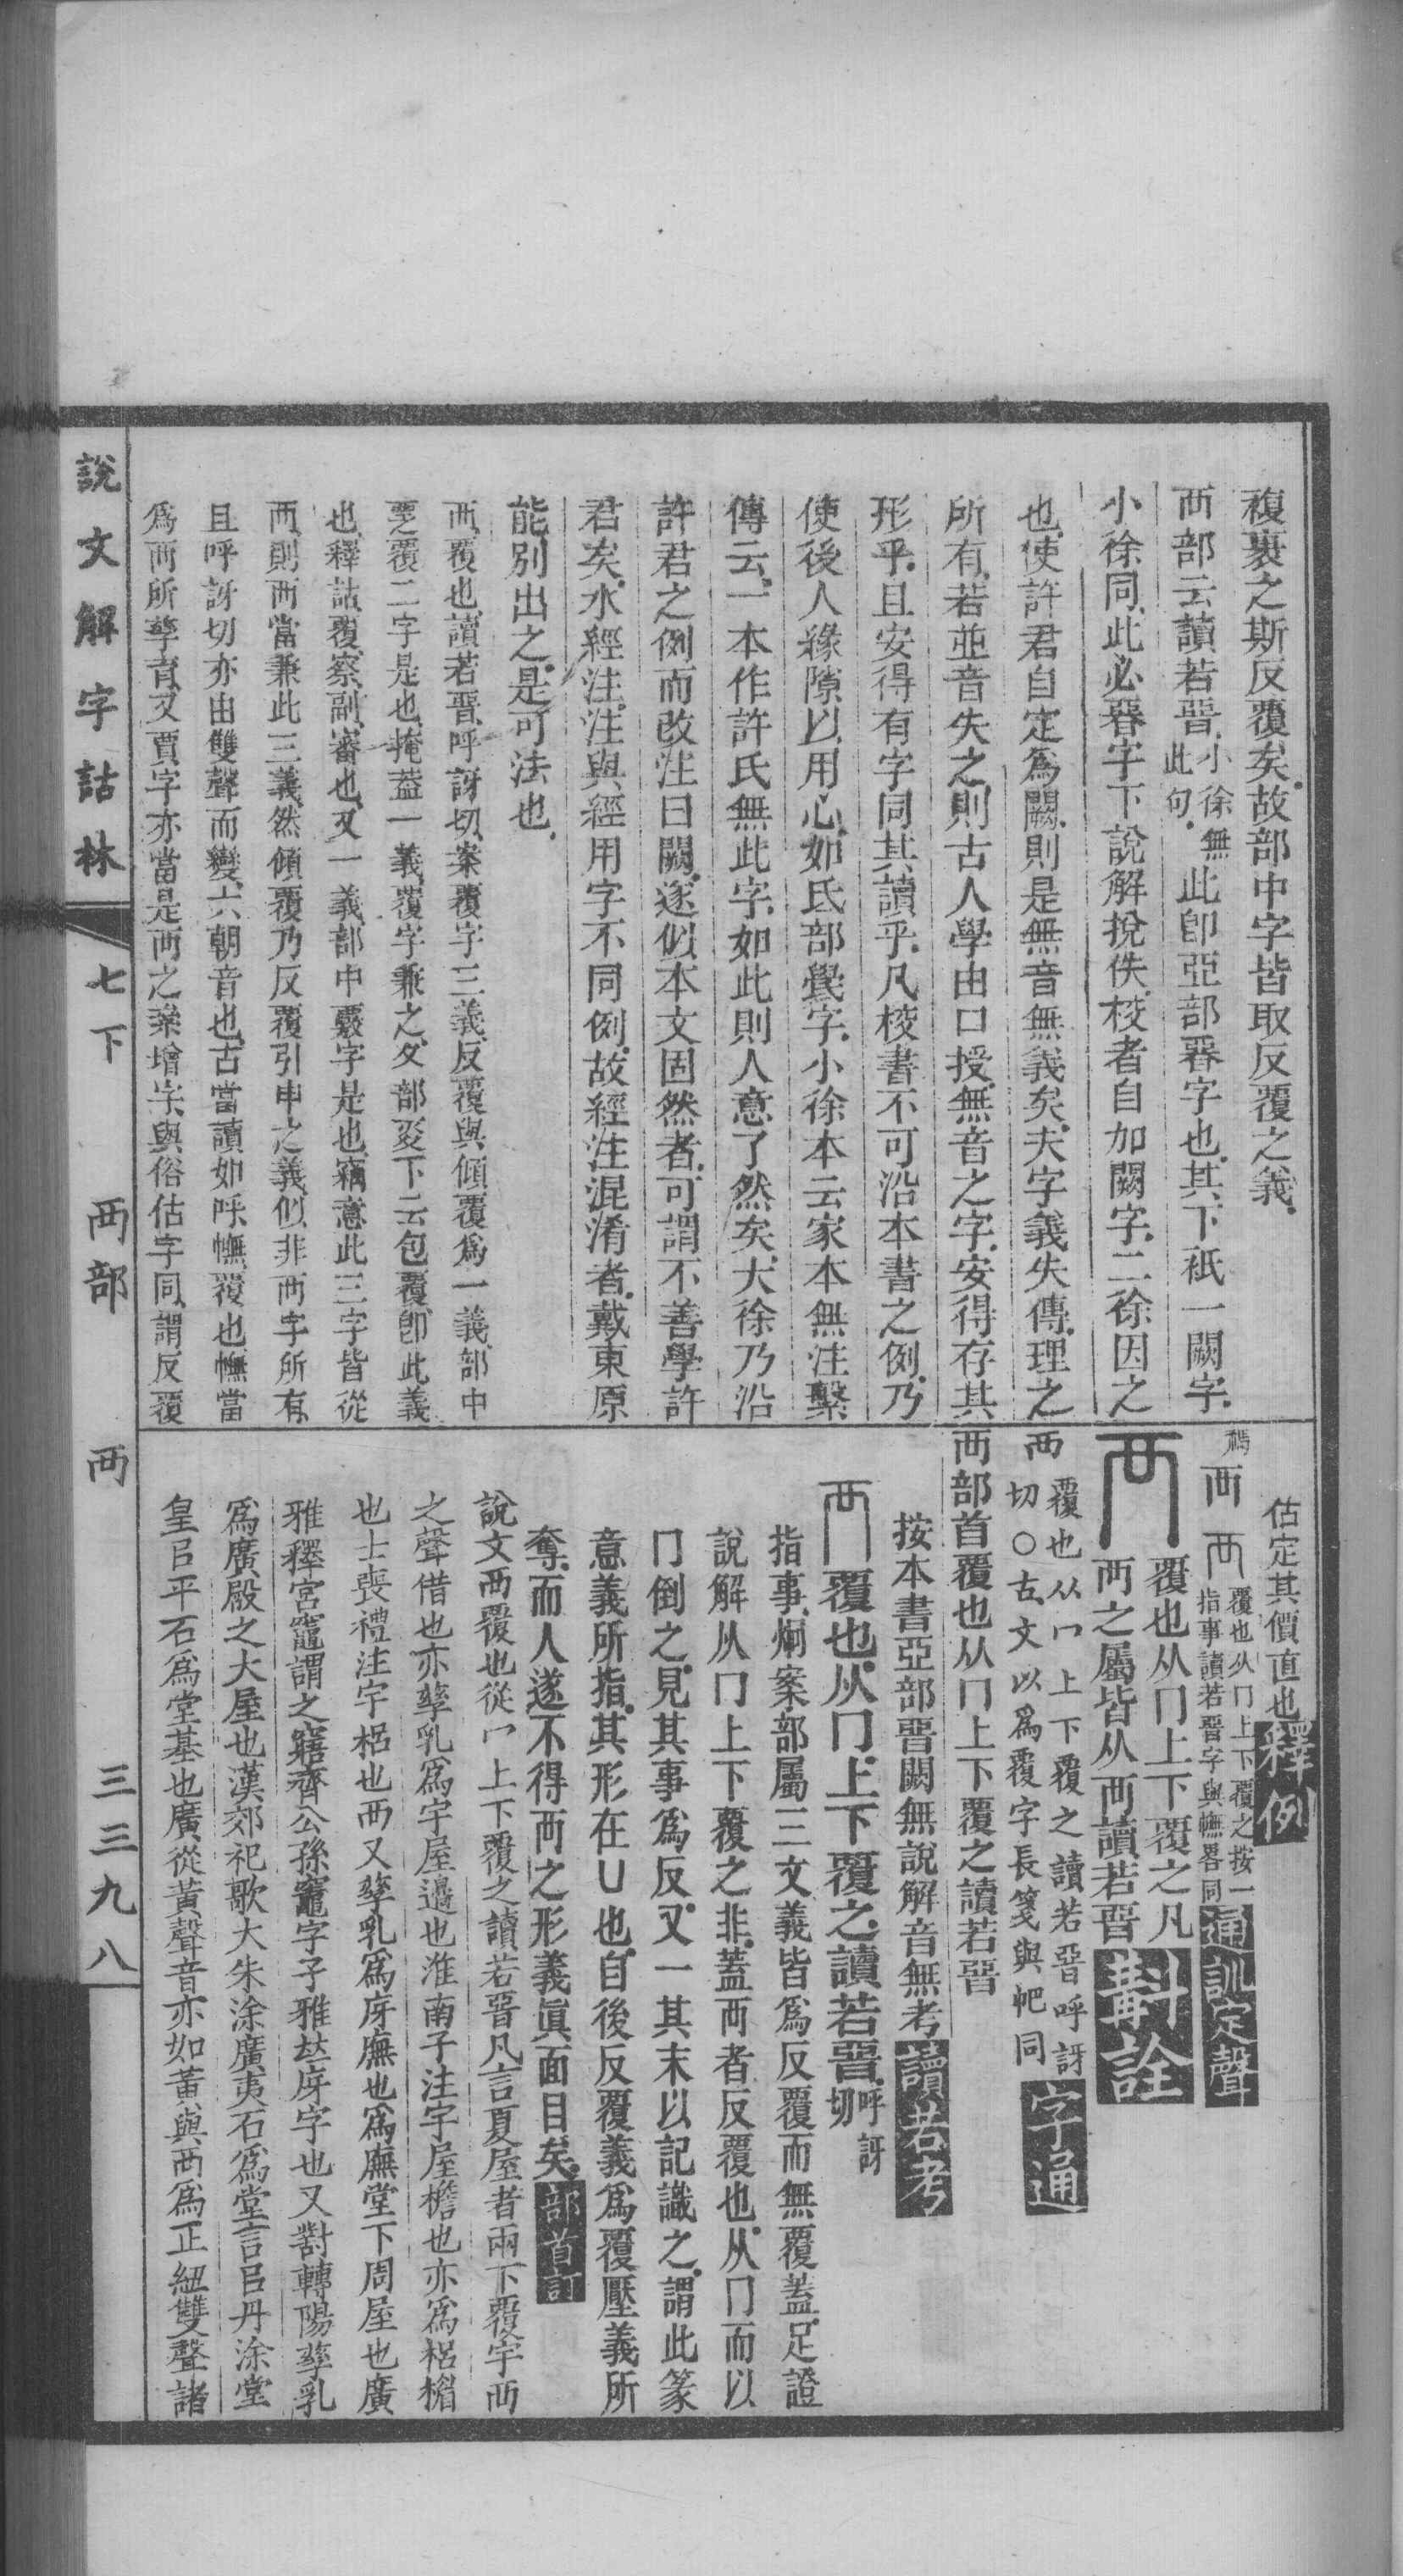 複裹之斯反覆矣故部中字皆取反覆之義
襾部云讀若晋小徐無此句此卽亞部𣈆字也其下祇一闕字
小徐同此必𣈆字下說解挩佚校者自加闕字二徐因之
也使許君自定爲闕則是無音無義矣夫字義失傳理之
所有若並音失之則古人學由口授無音之字安得存其
形乎且安得有字同其讀乎凡校書不可沿本書之例乃
使後人緣隙以用心如氐部字小徐本云家本無注繫
傳云一本作許氏無此字如此則人意了然矣大徐乃沿
許君之例而改注曰闕遂似本文固然者可謂不善學許
君矣水經注注與經用字不同例故經注混淆者戴東原
能別出之是可法也
襾覆也讀若晋呼訝切案覆字三義反覆與傾覆爲一義部中
覂覆二字是也掩蓋一義覆字兼之夊部夎下云包覆卽此義
也釋詁覆察副審也又一義部中覈字是也竊意此三字皆從
襾則襾當兼此三義然傾覆乃反覆引申之義似非襾字所有
且呼訝切亦由雙聲而變六朝音也古當讀如呼幠覆也幠當
爲襾所孳育又賈字亦當是襾之絫增字與俗估字同謂反覆
估定其價直也釋例
襾 覆也从冂上下覆之按一指事讀若晋字與幠畧同通訓定聲
覆也从冂上下覆之凡襾之屬皆从襾讀若晋斠詮
襾 覆也从冖上下覆之讀若晋呼訝切○古文以爲覆字長箋與帊同字通
襾部首覆也从冂上下覆之讀若晋
按本書亞部晋闕無說解音無考讀若考
襾 覆也从冂上下覆之讀若晋呼訝切
指事炯案部屬三文義皆爲反覆而無覆蓋足證
說解从冂上下覆之非蓋襾者反覆也从冂而以
冂倒之見其事爲反又一其末以記識之謂此篆
意義所指其形在凵也自後反覆義爲覆壓義所
奪而人遂不得襾之形義眞面目矣部首訂
說文襾覆也從冖上下覆之讀若晋凡言夏屋者兩下覆宇襾
之聲借也亦孳乳爲宇屋邊也淮南子注宇屋檐也亦爲梠楣
也士喪禮注宇梠也襾又孳乳爲庌廡也爲廡堂下周屋也廣
雅釋宮竈謂之竈齊公孫竈字子雅庌字也又對轉陽孳乳
爲廣殿之大屋也漢郊祀歌大朱涂廣夷石爲堂言㠯丹涂堂
皇㠯平石爲堂基也廣從黃聲音亦如黃與襾爲正紐雙聲諸
說文解字詁林 七下 襾部 襾 三三九八